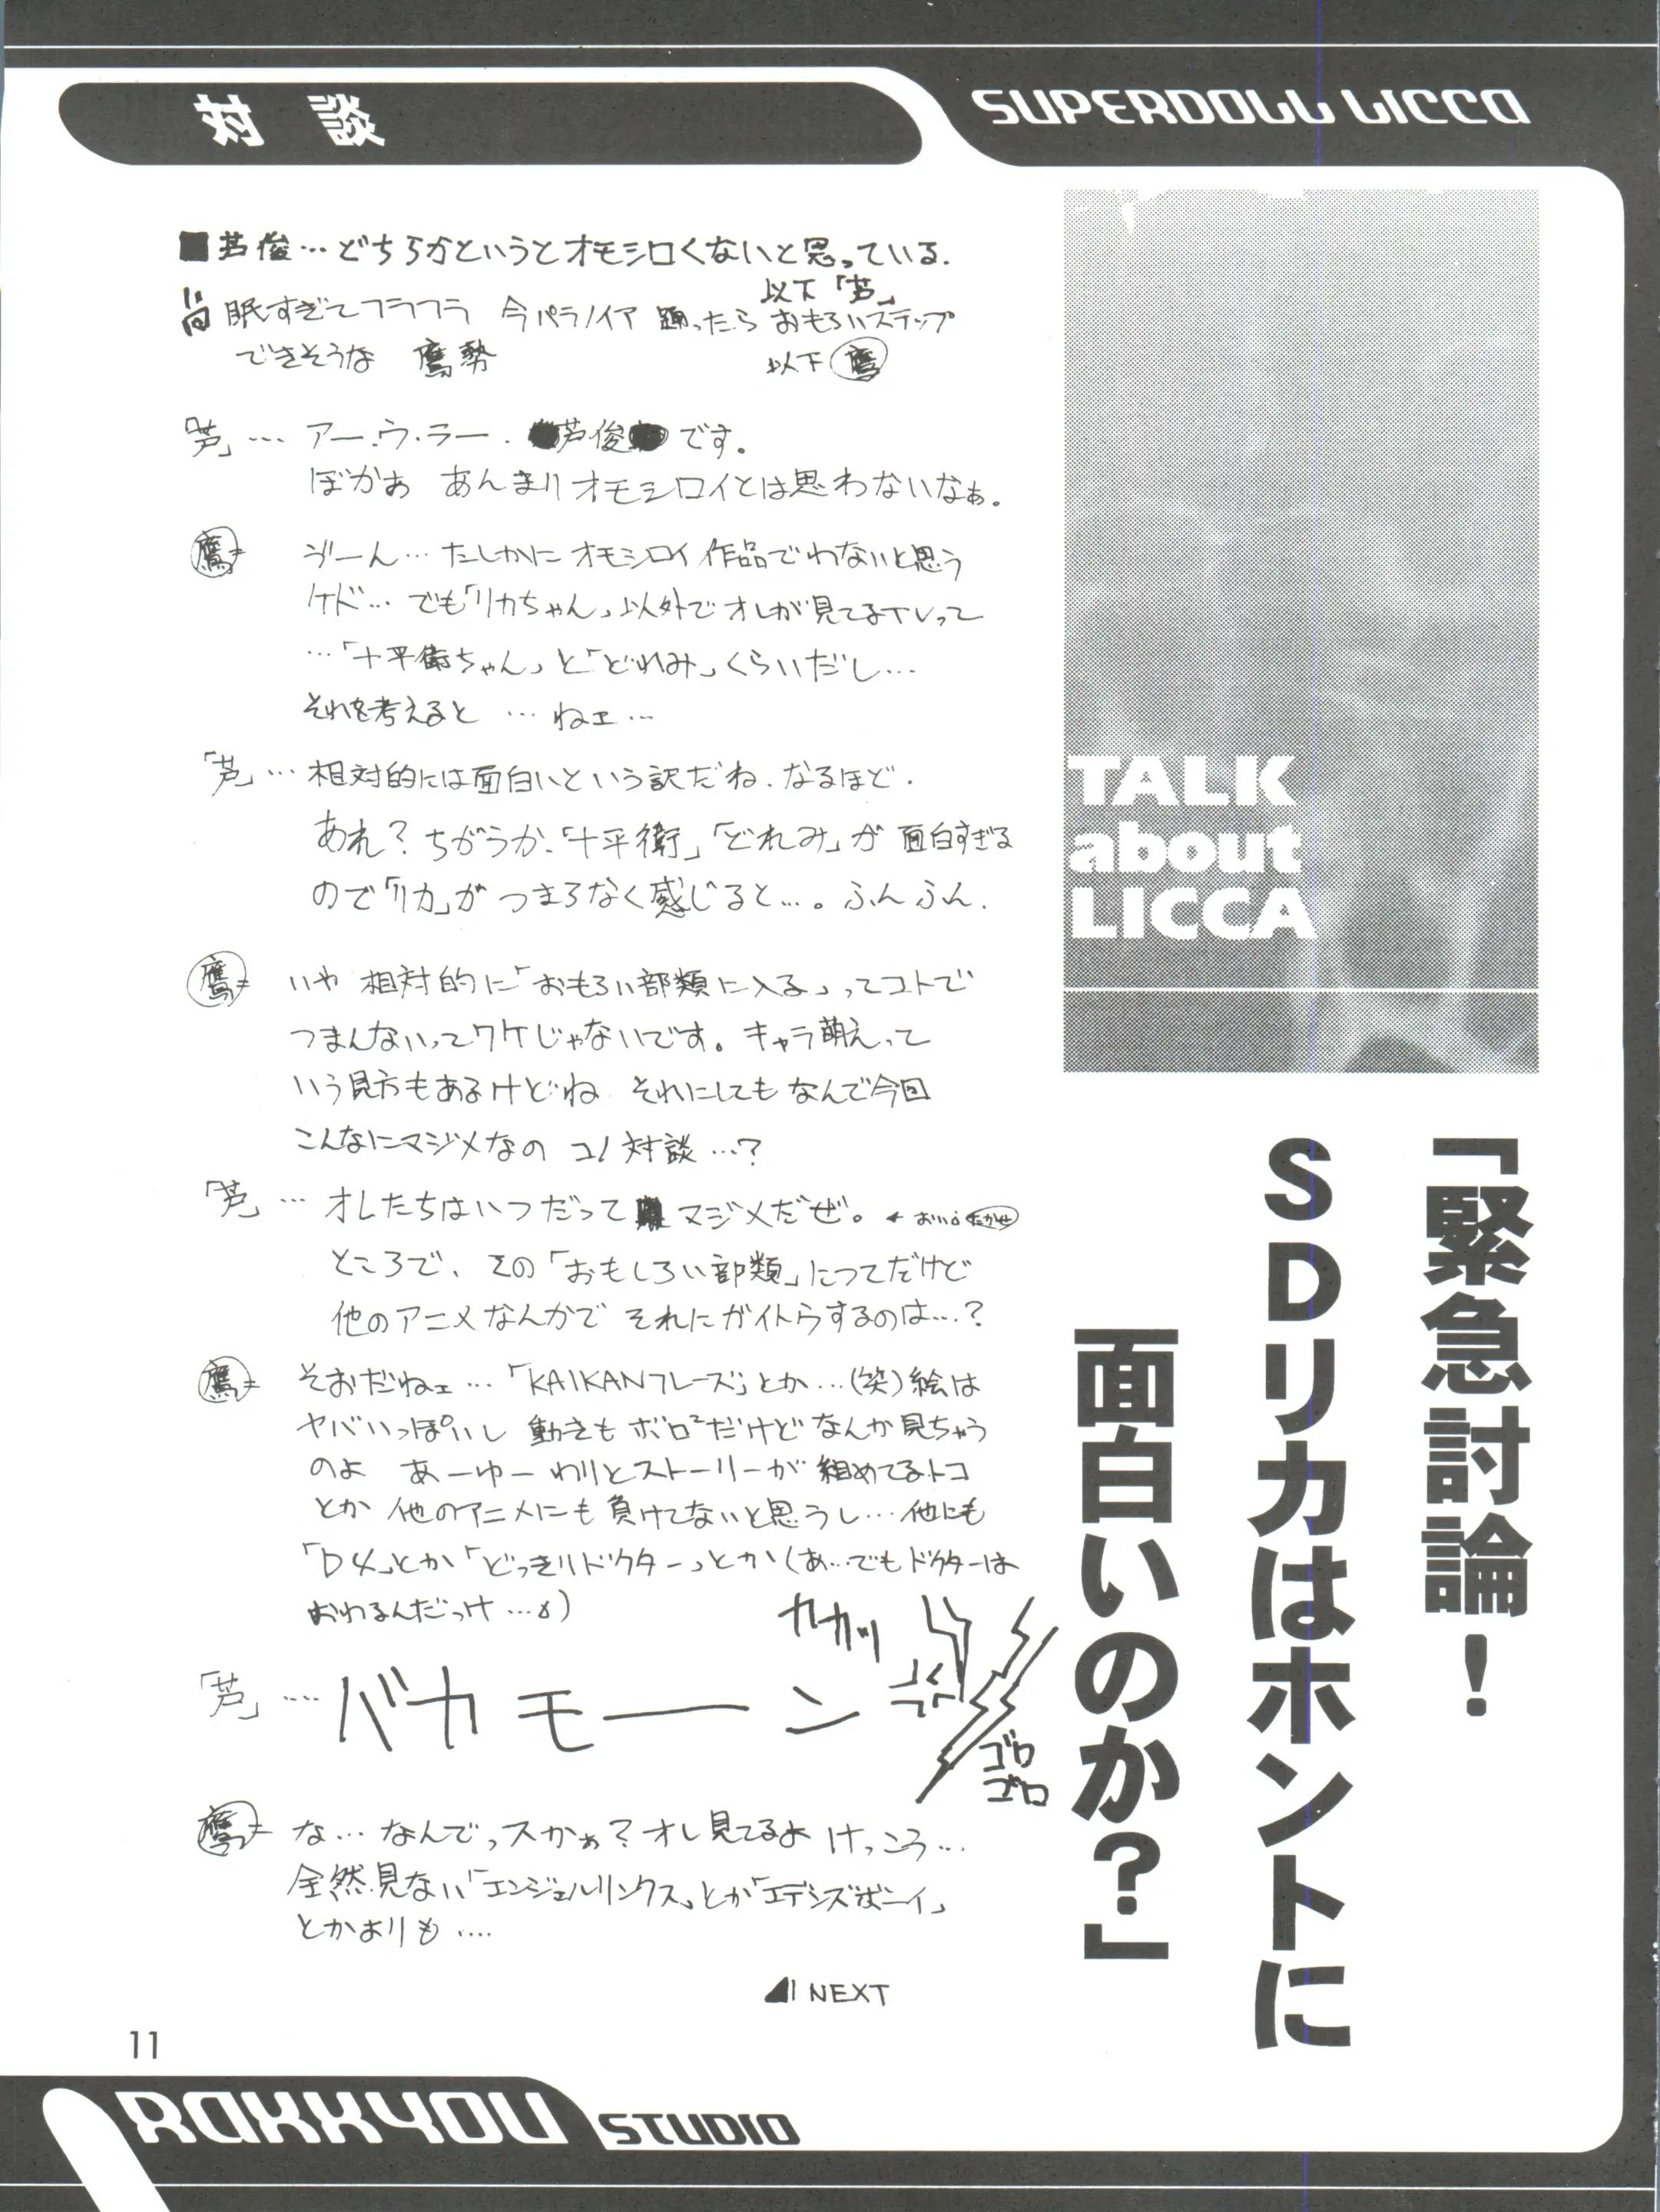 対談
SUPERDOLL LICCA
TALK
about
LICCA
「緊急討論!
SDリカはホントに
面白いのか?」
■芦俊…どちらかというとオモシロくないと思っている.
以下「芦」
眠すぎてフラフラ 今パラノイア 踊ったら おもろいステップ
できそうな 鷹勢 以下 鷹
「芦」… アー.ウ.ラー. 芦俊 です。
ぼかぁ あんまりオモシロイとは思わないなぁ。
鷹= ゔーん… たしかに オモシロイ 作品でわないと思う
ケド… でも「リカちゃん」以外で オレが見てるTVって
…「十平衛ちゃん」と「どれみ」くらいだし…
それを考えると … ねェ…
「芦」… 相対的には面白いという訳だね. なるほど.
あれ? ちがうか.「十平衛」「どれみ」が 面白すぎる
ので「リカ」が つまらなく感じると…。ふんふん.
鷹= いや 相対的に「おもろい部類に入る」ってコトで
つまんないってワケじゃないです。キャラ萌えって
いう見方もあるけどね それにしても なんで今回
こんなにマジメなの コノ対談…?
「芦」… オレたちはいつだって マジメだぜ。 ← おい。たかせ
ところで、その「おもしろい部類」につてだけど
他のアニメなんかで それにガイトウするのは…?
鷹= そおだねェ…「KAIKANフレーズ」とか…(笑)絵は
ヤバいっぽいし 動きも ボロ²だけど なんか見ちゃう
のよ あーゆー わりとストーリーが 組めてるトコ
とか 他のアニメにも 負けてないと思うし…他にも
「D4」とか「どっきりドクター」とか(あ…でもドクターは
おわるんだっけ…)
カカッ
「芦」…. バカモーン
ゴロ
ゴロ
鷹= な… なんでっスかぁ? オレ見てるよ けっこう…
全然見ない「エンジェルリンクス」とか「エデンズボーイ」
とかよりも ….
NEXT
11
RAKKYOU STUDIO